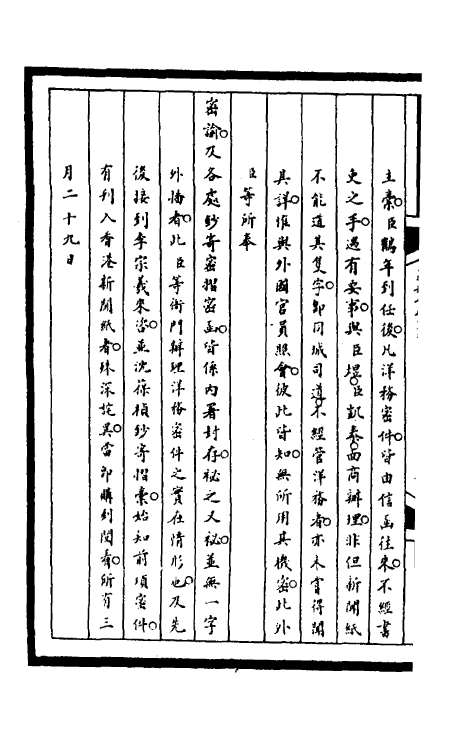 主稾臣鶴年到任後凡洋務密件皆由信函往來不經書
吏之手遇有要事與臣堃臣凱泰面商辦理非但新聞紙
不能道其隻字卽同城司道不經管洋務者亦未嘗得聞
其詳惟與外國官員照會彼此皆知無所用其機密此外
臣等所奉
密諭及各處鈔寄密摺密函皆係內署封存祕之又祕並無一字
外播者此臣等衙門辦理洋務密件之實在情形也及先
後接到李宗羲來咨並沈葆楨鈔寄摺稾始知前項密件
有刊入香港新聞紙者殊深詫異當卽購到閱看所有三
月二十九日